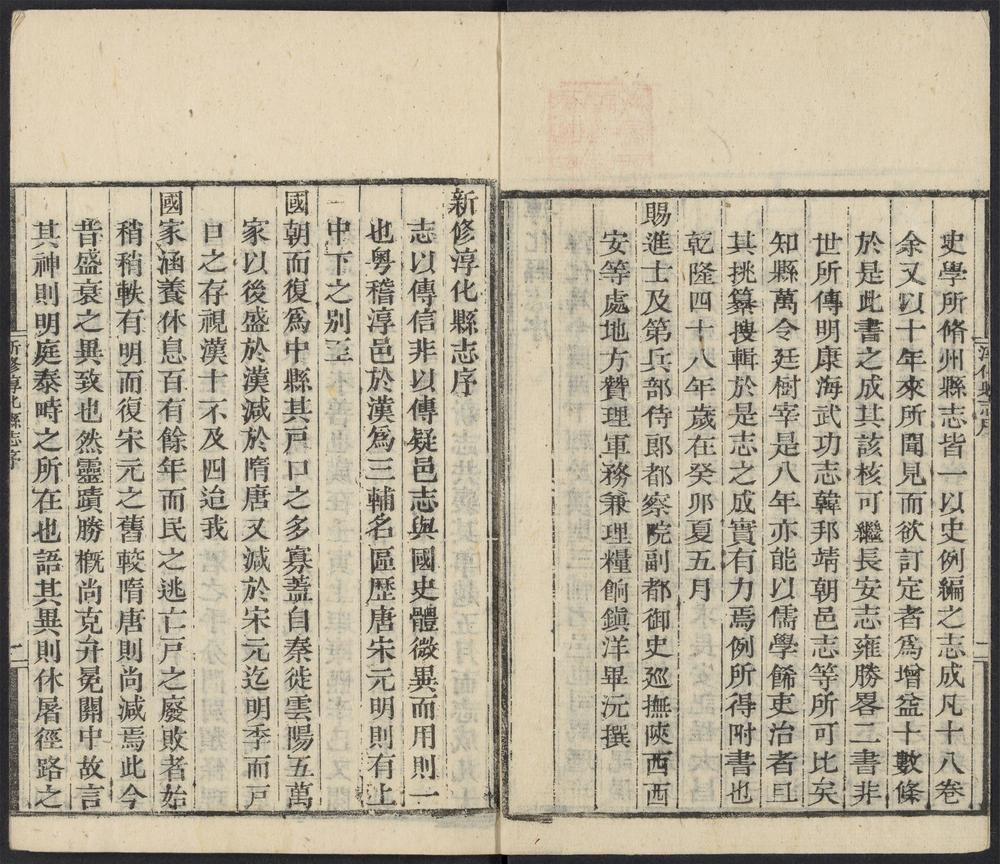 史學所脩州縣志皆一以史例編之志成凡十八卷
余又以十年來所聞見而欲訂定者爲增益十數條
於是此書之成其該核可繼長安志雍勝畧三書非
世所傳明康海武功志韓邦靖朝邑志等所可比矣
知縣萬令廷樹宰是八年亦能以儒學餙吏治者且
其挑纂搜輯於是志之成實有力焉例所得附書也
乾隆四十八年歲在癸卯夏五月
賜進士及第兵部侍郎都察院副都御史巡撫陝西西
安等處地方贊理軍務兼理糧餉鎭洋畢沅撰
新修淳化縣志序
志以傳信非以傳疑邑志與國史體微異而用則一
也粤稽淳邑於漢爲三輔名區歷唐宋元明則有上
中下之别至
國朝而復爲中縣其戸口之多寡蓋自秦徙雲陽五萬
家以後盛於漢減於隋唐又減於宋元迄明季而戸
口之存視漢十不及四迨我
國家涵養休息百有餘年而民之逃亡戸之廢敗者始
稍稍軼有明而復宋元之舊較隋唐則尚減焉此今
昔盛衰之異致也然靈蹟勝概尚克弁冕關中故言
其神則明庭泰畤之所在也語其異則休屠徑路之
新修淳化縣志序
二